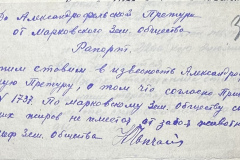 Во Александрфельской Претуры
от Марковского Зем. общества
Рапорт.
ставим в известность Александро
Претуру, о том что согласно
№ 1737. По Марковскому Зем. Обществу
жиров не имеется от забоя
Зем. Общества